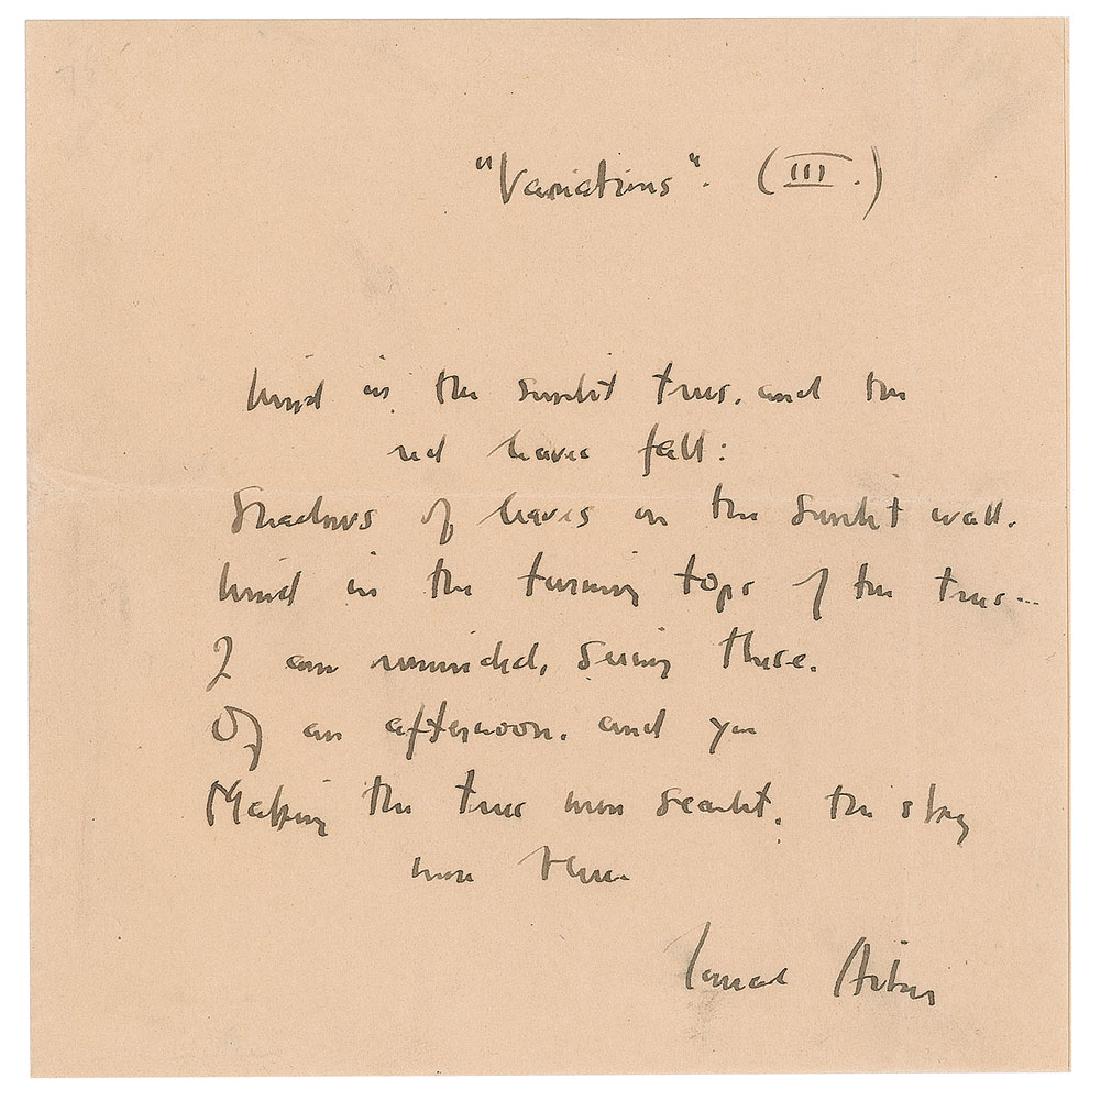 "Variations". (III.)
Wind in the sunlit trees, and the
red leaves fall:
Shadows of leaves on the sunlit wall.
Wind in the turning tops of the trees...
I am reminded, seeing these,
Of an afternoon, and you
Making the trees more scarlet, the sky
more blue.
Conrad Aiken